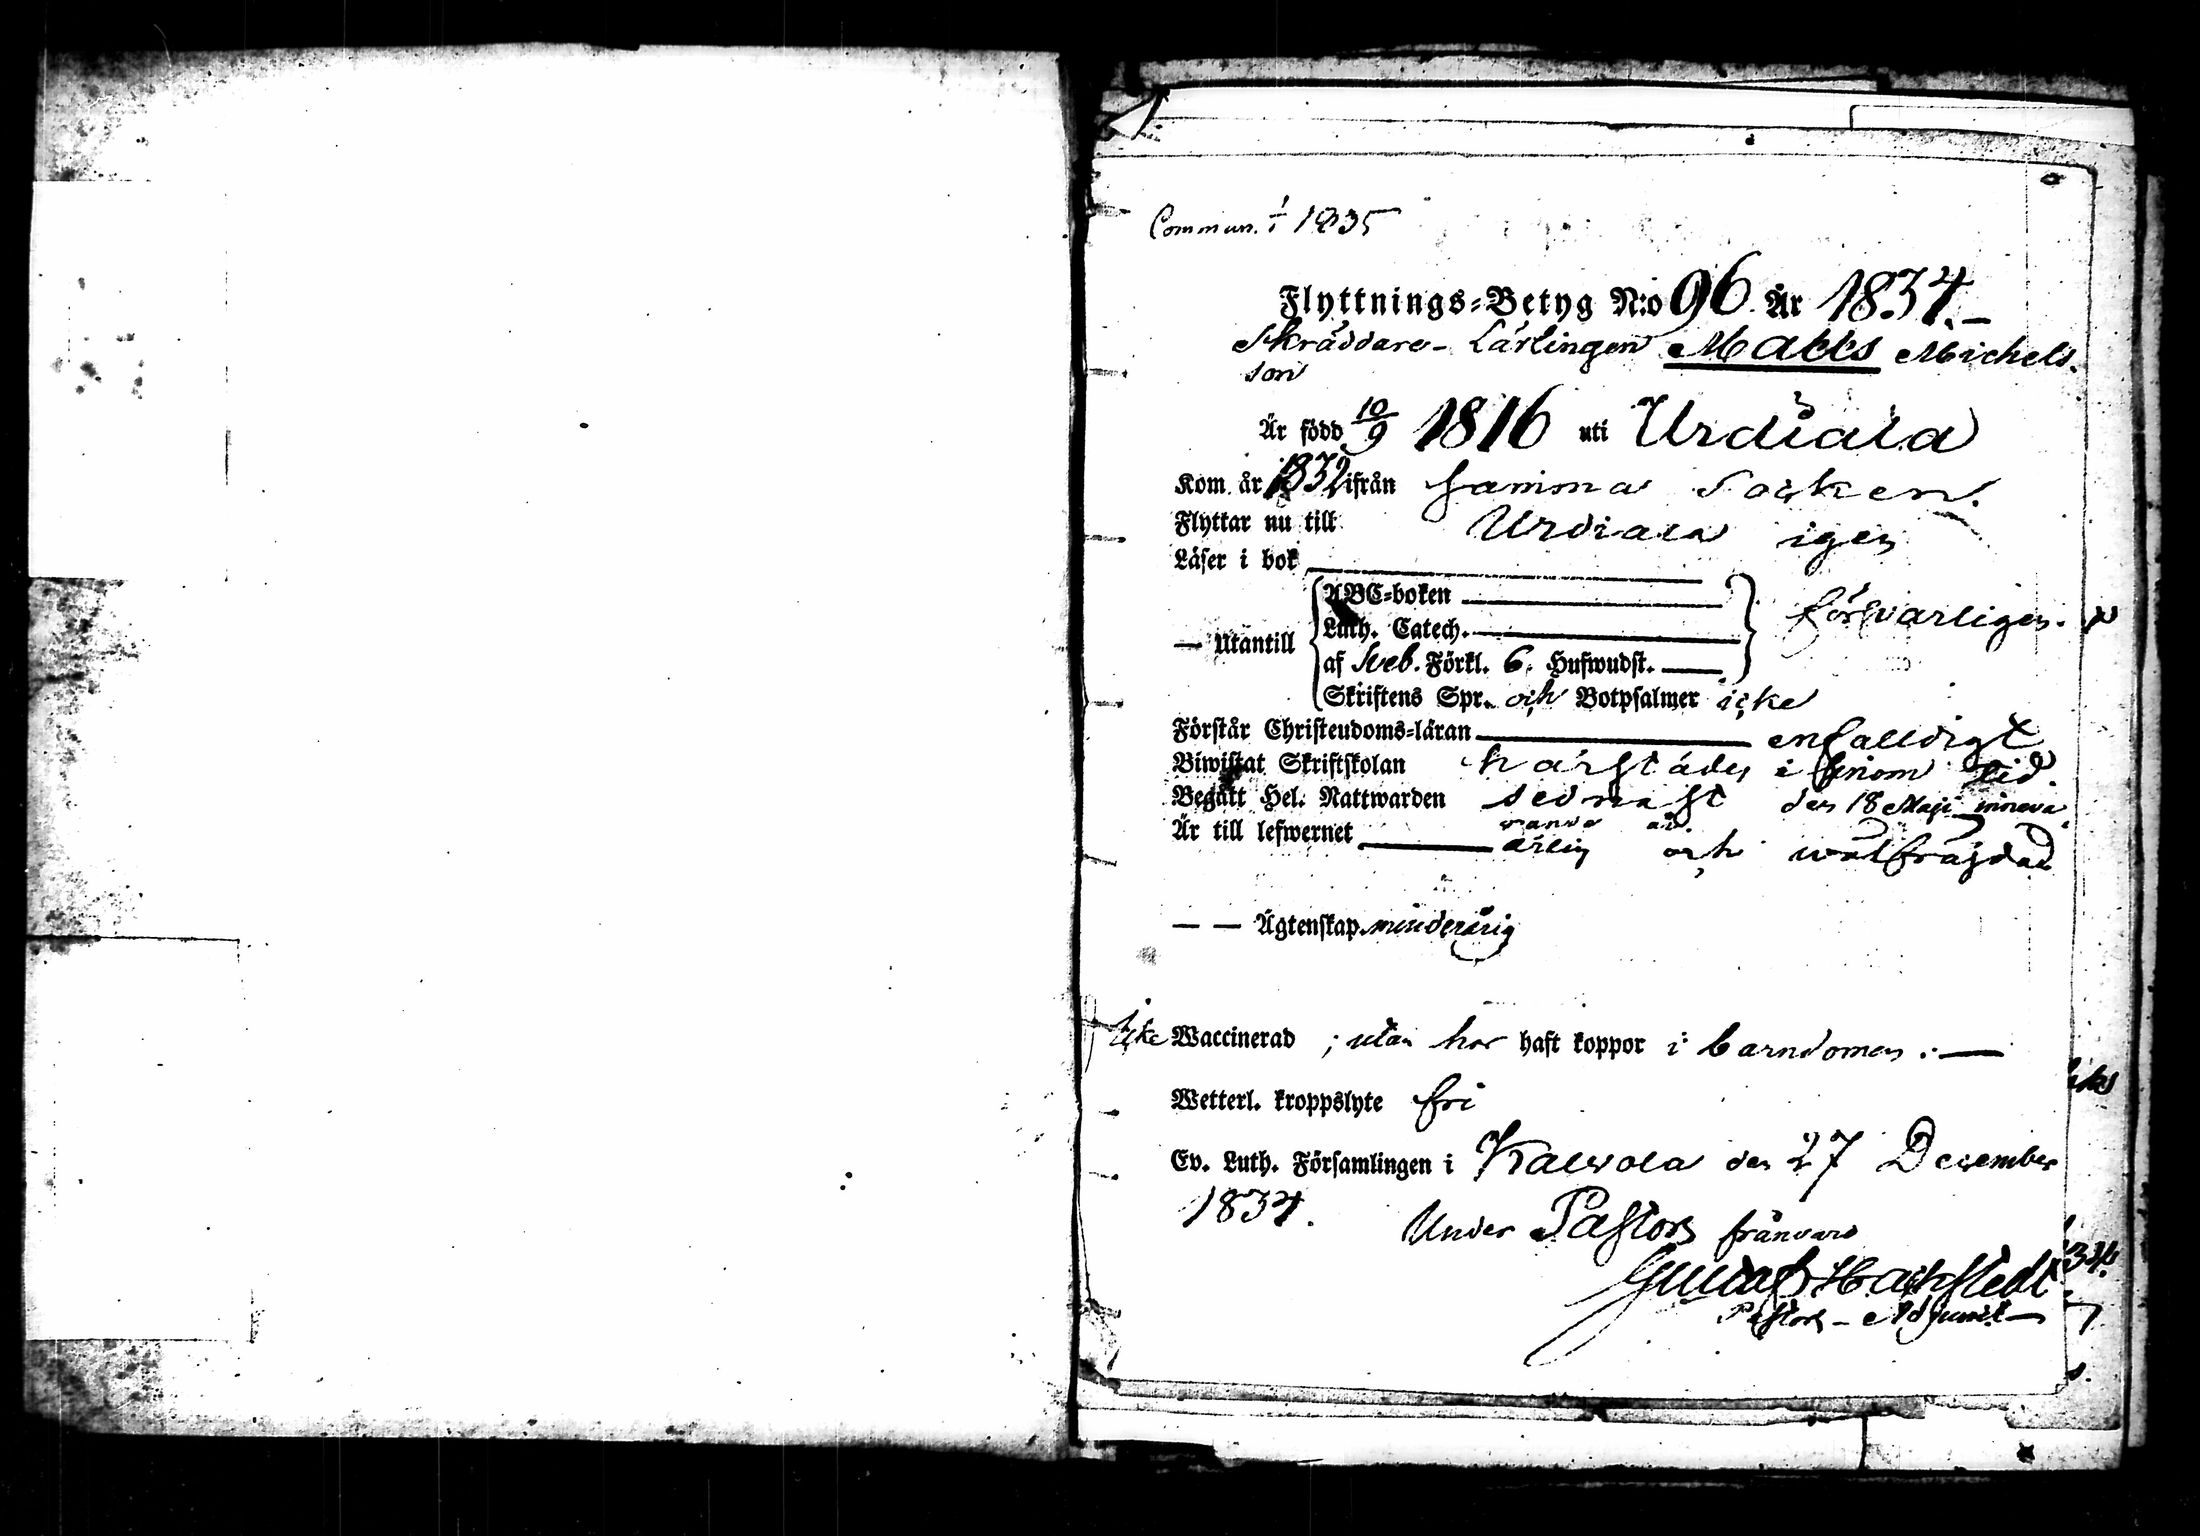 Commun. 1/1 1835
Flyttnings-Betyg N:o 96. År 1834.—
Skräddare-Lärlingen Matts Michels-
son
Är född 10/9 1816 uti Urdiala
Kom år 1832 ifrån samma Socken.
Flyttar nu till Urdiala igen
Läser i bok
ABC-boken
Luth. Catech. försvarligen.
— Utantill
af Sveb. Förkl. 6 Hufwudst.
Skriftens Spr. och Botpsalmer icke
Förstår Christendoms-läran enfalldigt
Biwistat Skriftskolan härstädes i sinom tid.
Begått Hel. Nattwarden sednast den 18 Maji inneva-
rande år.
Är till lefwernet ärlig och wälfräjdad
— — Ägtenskap minderårig
Icke Waccinerad ; utan har haft koppor i barndomen.—
Wetterl. kroppslyte fri
Ev. Luth. Församlingen i Kalvola den 27 December
1834.
Under Pastors frånvaro
Gustaf Hackstedt
Pastors-Adjunct